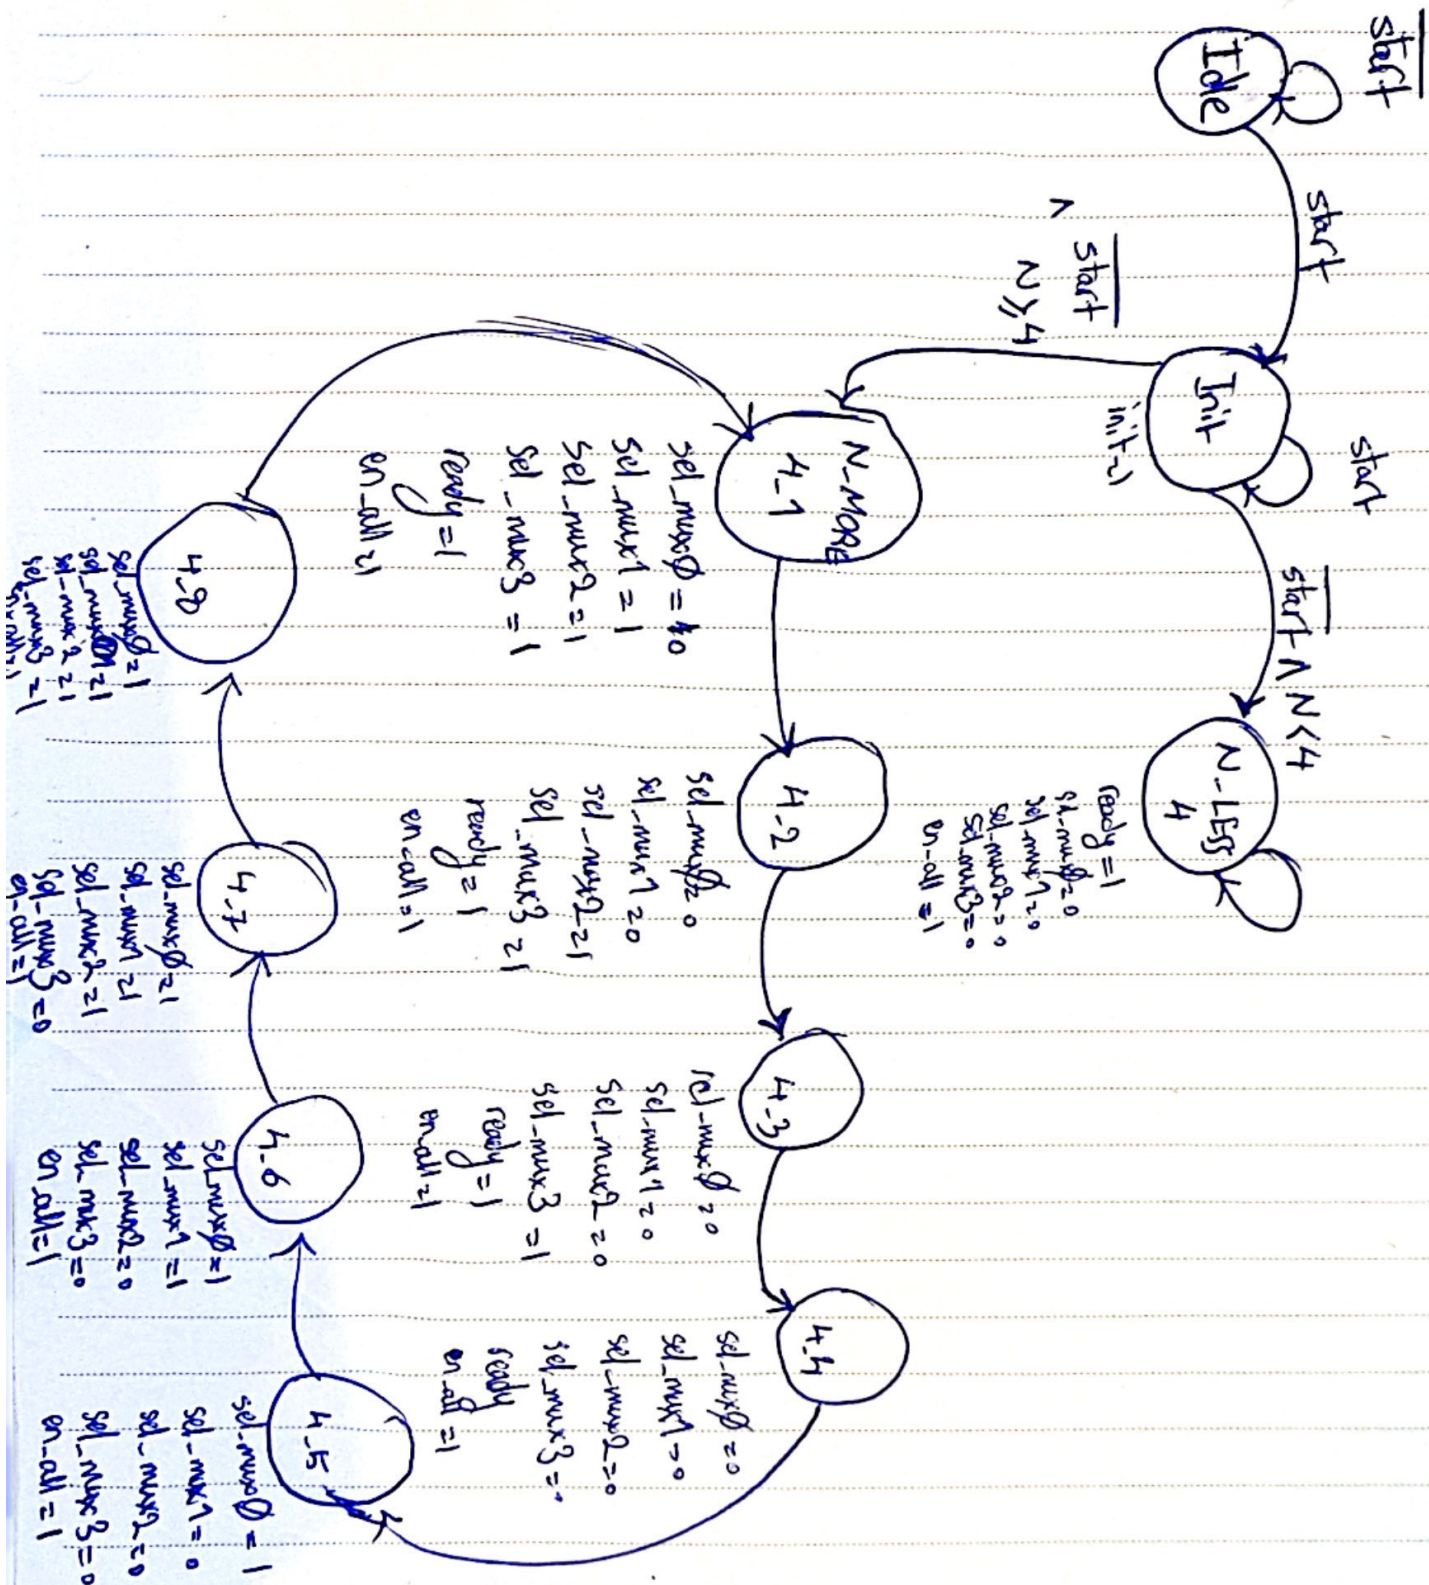 start
Idle
start
start
Init
init=1
start
∧
N≥4
start ∧ N<4
N-LESS
4
ready=1
sel-mux0=0
sel-mux1=0
sel-mux2=0
sel-mux3=0
en-all=1
N-MORE
4-1
sel-mux0=0
sel-mux1=1
sel-mux2=1
sel-mux3=1
ready=1
en-all=1
4-2
sel-mux0=0
sel-mux1=0
sel-mux2=1
sel-mux3=1
ready=1
en-all=1
4-3
sel-mux0=0
sel-mux1=0
sel-mux2=0
sel-mux3=1
ready=1
en-all=1
4-4
sel-mux0=0
sel-mux1=0
sel-mux2=0
sel-mux3=0
ready
en-all=1
4-5
sel-mux0=1
sel-mux1=0
sel-mux2=0
sel-mux3=0
en-all=1
4-6
sel-mux0=1
sel-mux1=1
sel-mux2=0
sel-mux3=0
en-all=1
4-7
sel-mux0=1
sel-mux1=1
sel-mux2=1
sel-mux3=0
en-all=1
4-8
sel-mux0=1
sel-mux1=1
sel-mux2=1
sel-mux3=1
en-all=1